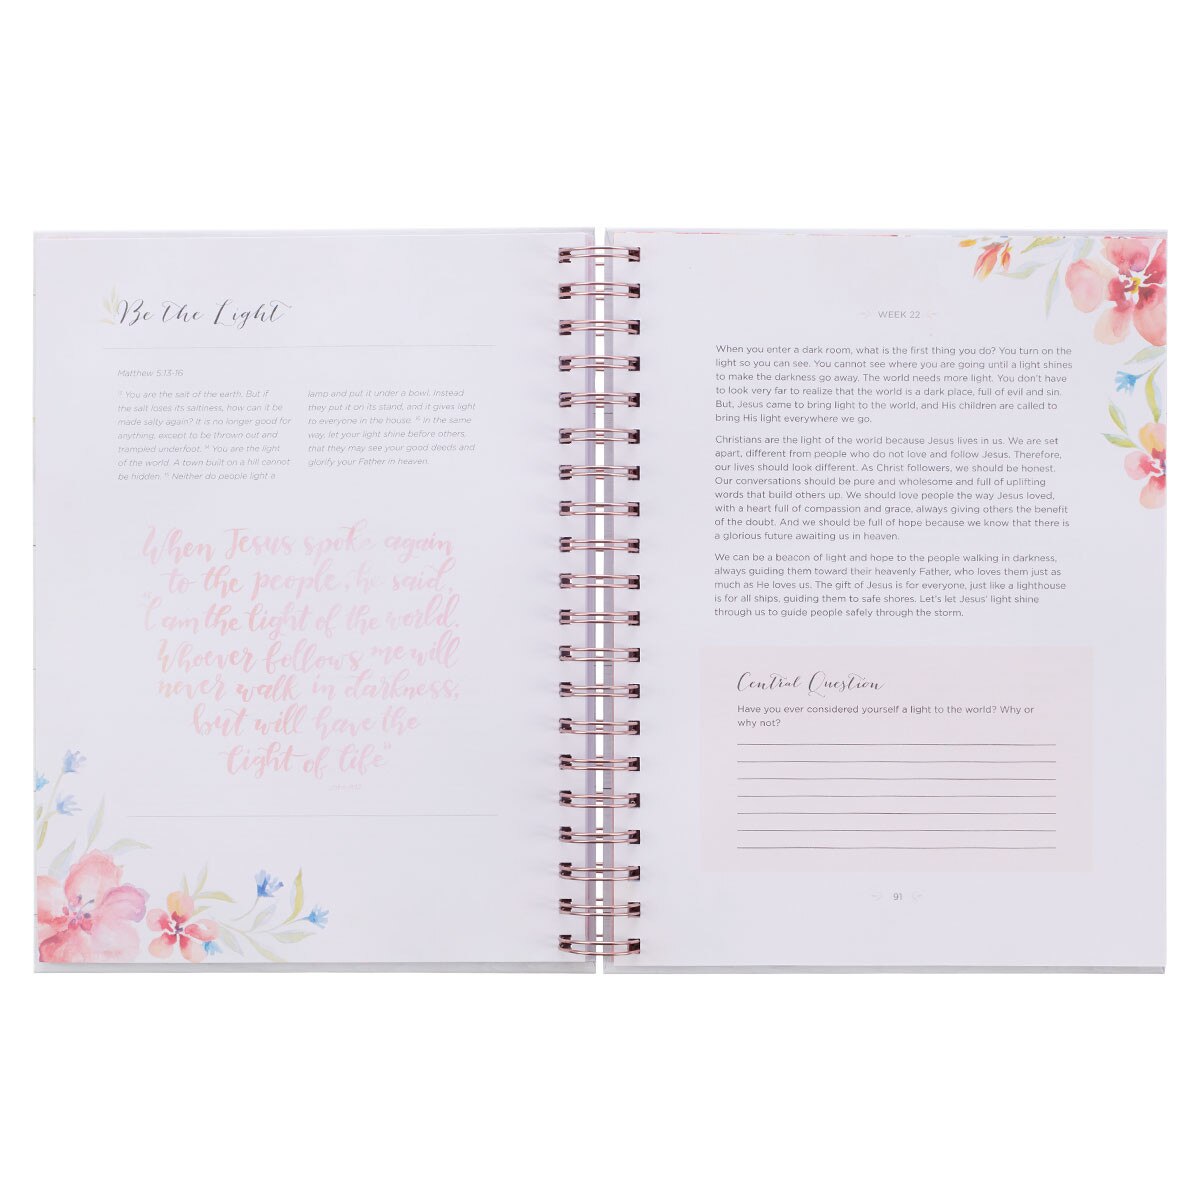 Be the Light
Matthew 5:13-16
¹³ You are the salt of the earth. But if
the salt loses its saltiness, how can it be
made salty again? It is no longer good for
anything, except to be thrown out and
trampled underfoot. ¹⁴ You are the light
of the world. A town built on a hill cannot
be hidden. ¹⁵ Neither do people light a
lamp and put it under a bowl. Instead
they put it on its stand, and it gives light
to everyone in the house. ¹⁶ In the same
way, let your light shine before others,
that they may see your good deeds and
glorify your Father in heaven.
When Jesus spoke again
to the people, he said,
"I am the light of the world.
Whoever follows me will
never walk in darkness,
but will have the
light of life."
John 8:12
WEEK 22
When you enter a dark room, what is the first thing you do? You turn on the
light so you can see. You cannot see where you are going until a light shines
to make the darkness go away. The world needs more light. You don't have
to look very far to realize that the world is a dark place, full of evil and sin.
But, Jesus came to bring light to the world, and His children are called to
bring His light everywhere we go.
Christians are the light of the world because Jesus lives in us. We are set
apart, different from people who do not love and follow Jesus. Therefore,
our lives should look different. As Christ followers, we should be honest.
Our conversations should be pure and wholesome and full of uplifting
words that build others up. We should love people the way Jesus loved,
with a heart full of compassion and grace, always giving others the benefit
of the doubt. And we should be full of hope because we know that there is
a glorious future awaiting us in heaven.
We can be a beacon of light and hope to the people walking in darkness,
always guiding them toward their heavenly Father, who loves them just as
much as He loves us. The gift of Jesus is for everyone, just like a lighthouse
is for all ships, guiding them to safe shores. Let's let Jesus' light shine
through us to guide people safely through the storm.
Central Question
Have you ever considered yourself a light to the world? Why or
why not?
91